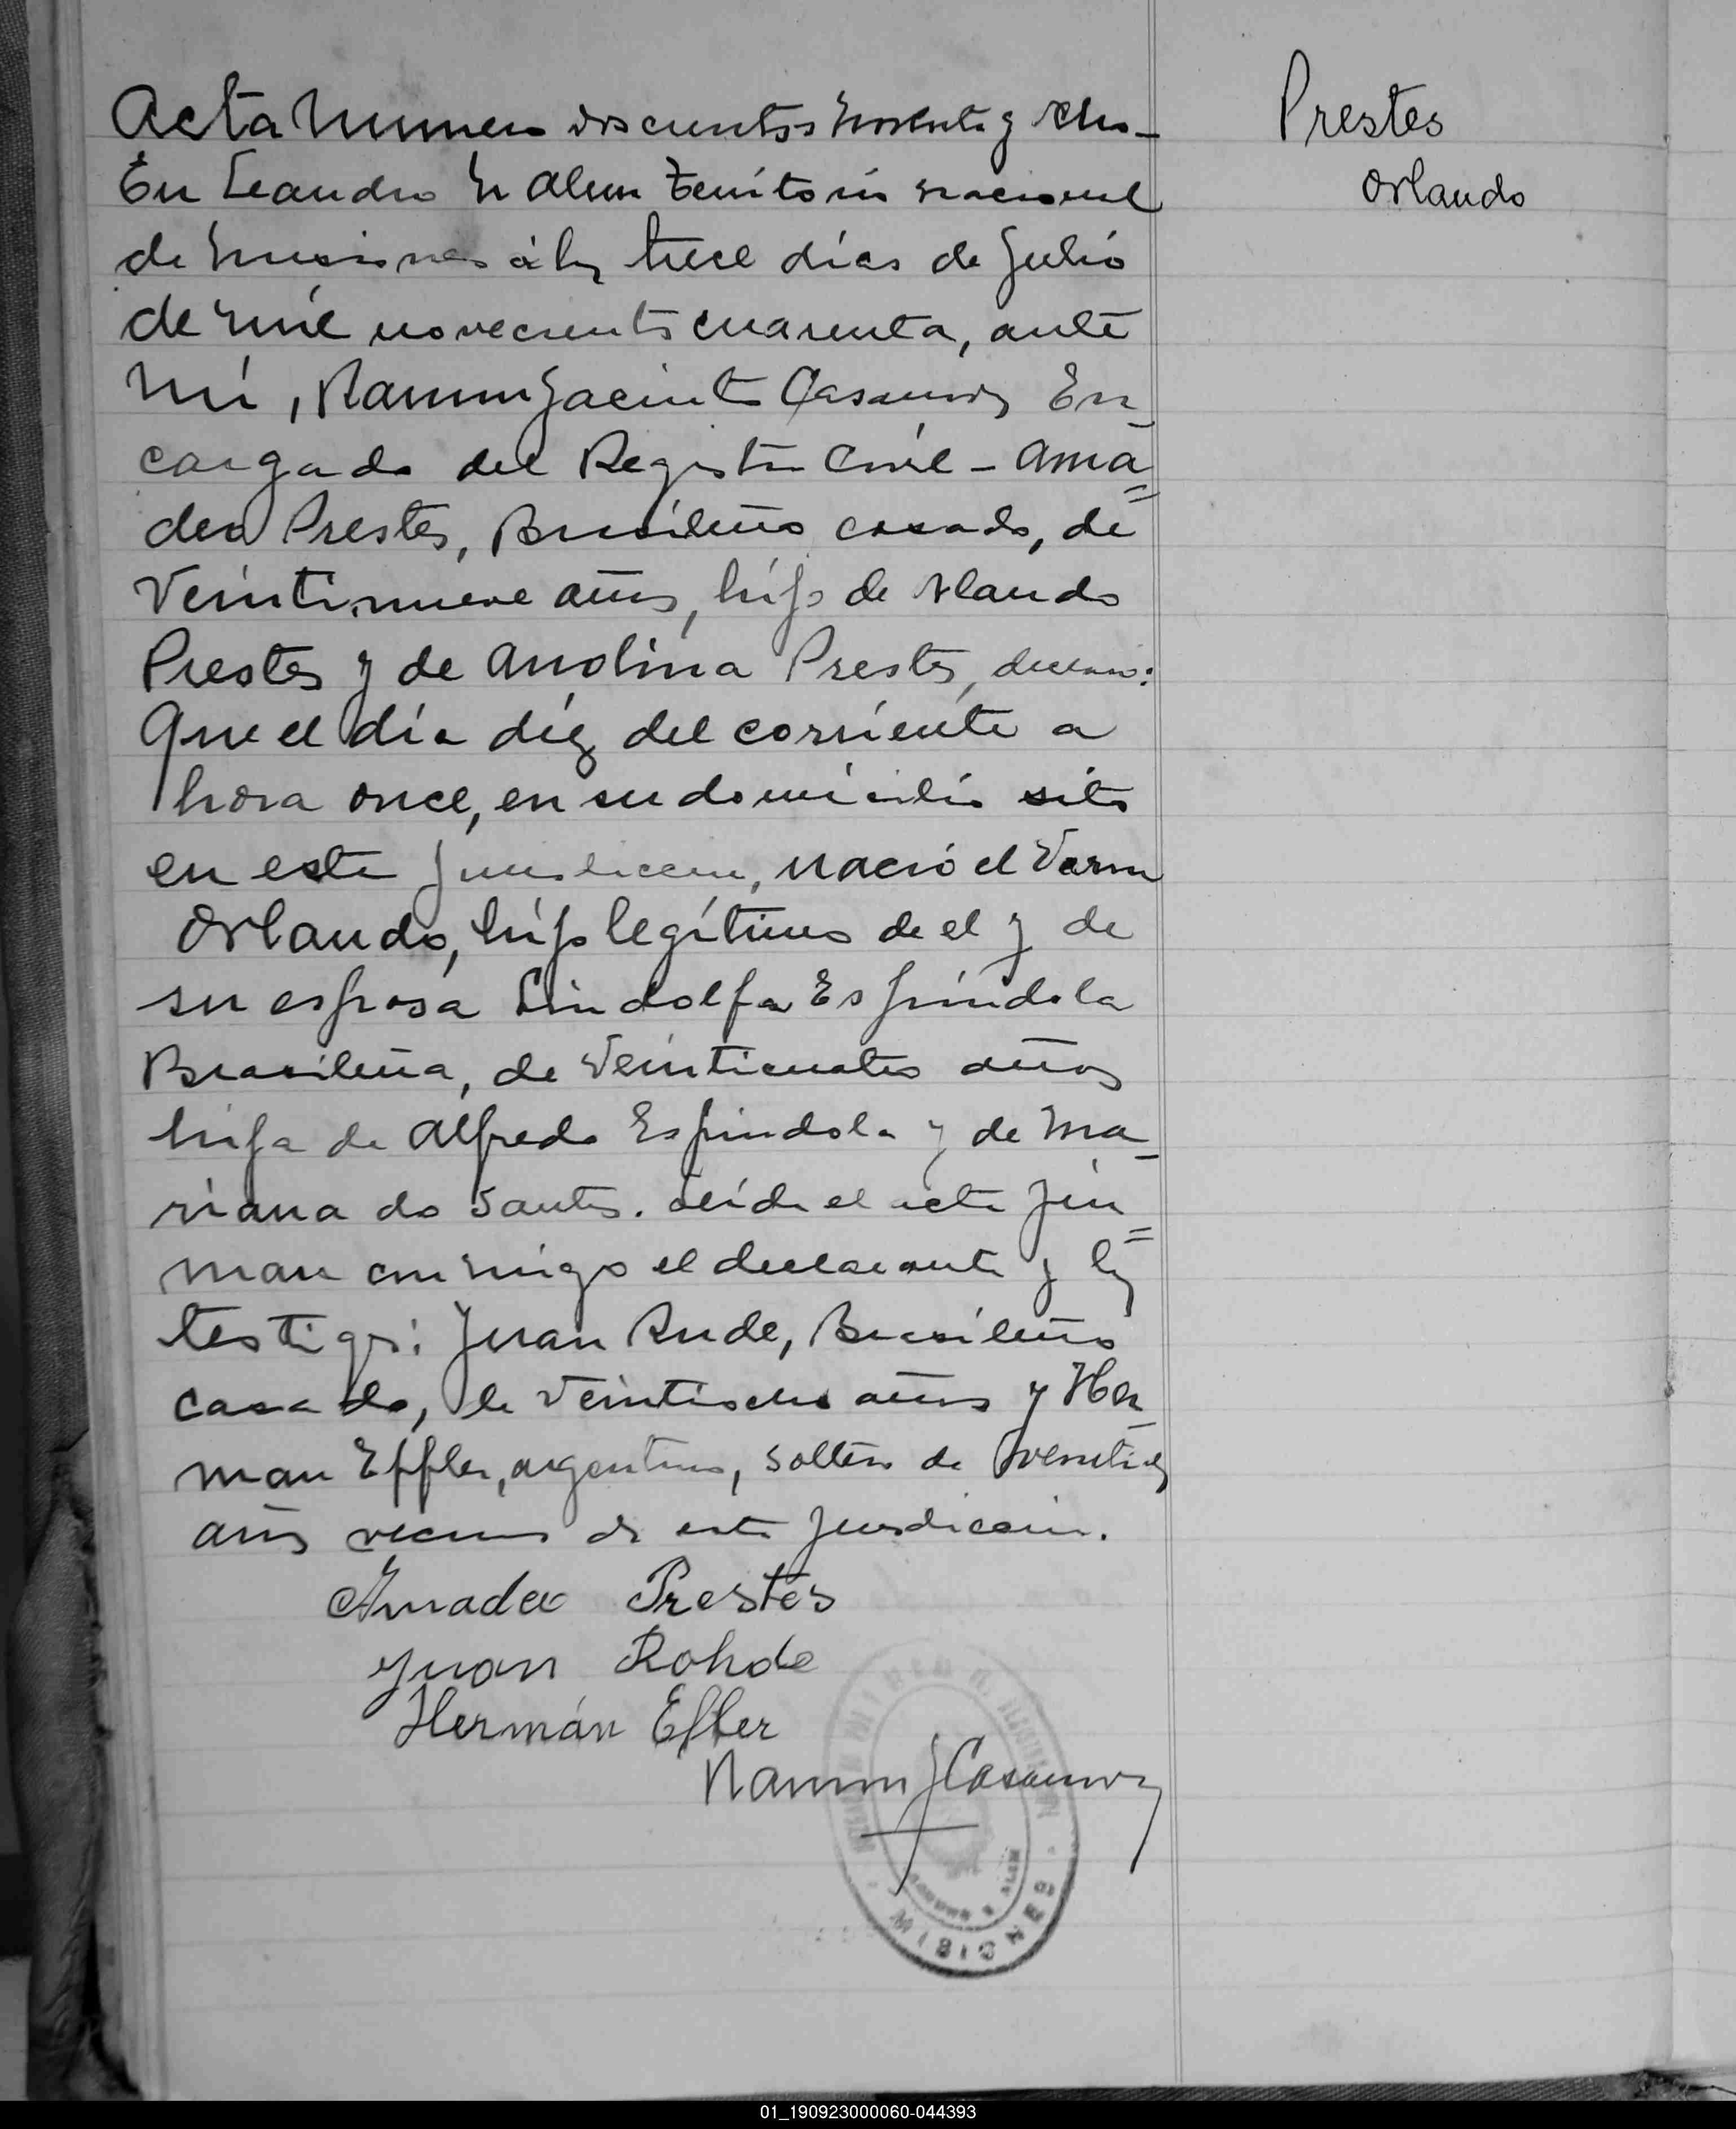 Acta Numero doscientos noventa y ocho_
En Leandro N Alem Territorio nacional
de Misiones á los trece días de Julio
de mil novecientos cuarenta, ante
mí, Ramon Jacinto Casanova En_
cargado del Registro Civil - Ama=
deo Prestes, Brasileño casado, de
Veintinueve años, hijo de Orlando
Prestes y de Anolina Prestes, declaró:
Que el día diez del corriente a
hora once, en su domicilio sito
en esta Jurisdiccion, nació el Varon
Orlando, hijo legítimo de el y de
su esposa Lindolfa Espíndola
Brasileña, de Veinticuatro años
hija de Alfredo Espindola y de Ma_
riana do Santos. Leída el acta fir=
man conmigo el declarante y los
testigos: Juan Rude, Brasileño
casado, de Veintiocho años y Her_
man Effler, argentino, soltero de
años vecinos de esta Jurisdiccion.
Amadeo Prestes
Juan Rohde
Hermán Efler
Ramon J Casanova
MISIONES
Prestes
Orlando
01_190923000060-044393